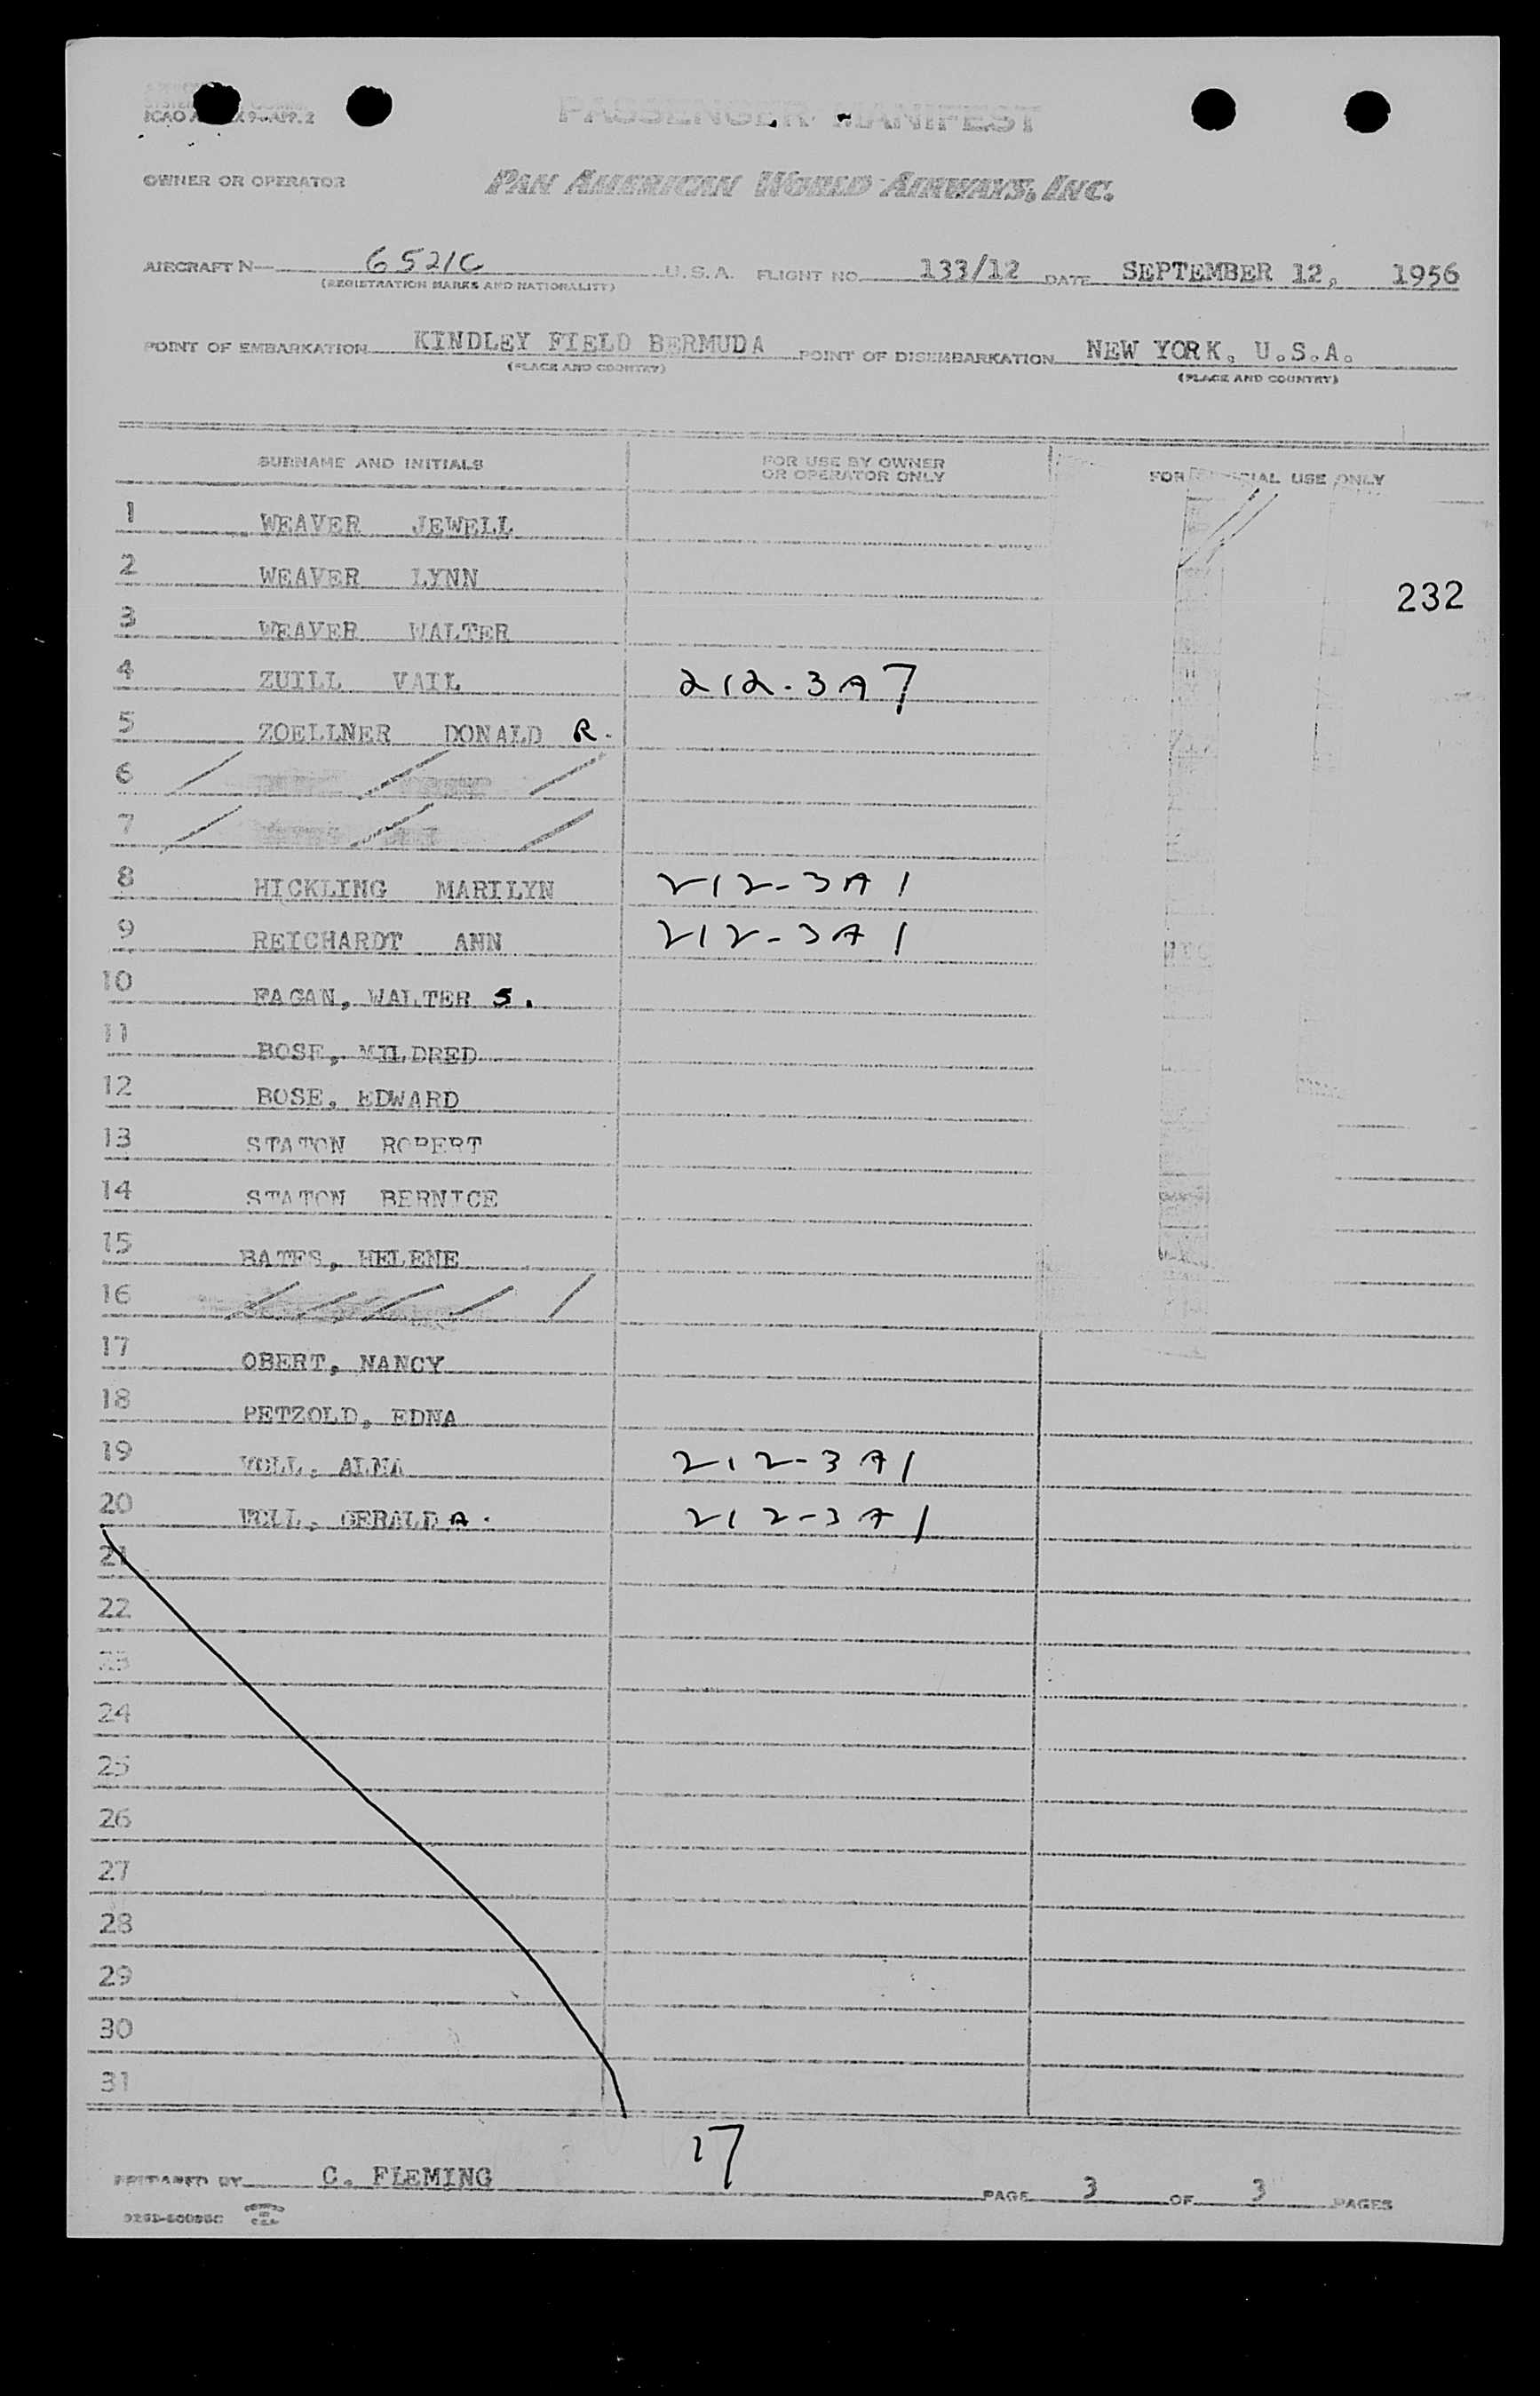 ICAO A X 9-APP. 2
PASSENGER MANIFEST
OWNER OR OPERATOR PAN AMERICAN WORLD AIRWAYS, INC.
AIRCRAFT N— 6521C U. S. A. FLIGHT NO. 133/12 DATE SEPTEMBER 12, 1956
(REGISTRATION MARKS AND NATIONALITY)
POINT OF EMBARKATION KINDLEY FIELD BERMUDA POINT OF DISEMBARKATION NEW YORK, U.S.A.
(PLACE AND COUNTRY) (PLACE AND COUNTRY)
SURNAME AND INITIALS FOR USE BY OWNER OR OPERATOR ONLY FOR USE ONLY
1 WEAVER JEWELL
2 WEAVER LYNN
232
3 WEAVER WALTER
4 ZUILL VAIL 212-3A7
5 ZOELLNER DONALD R.
6
7
8 HICKLING MARILYN 212-3A1
9 REICHARDT ANN 212-3A1
10 FAGAN, WALTER S.
11 BOSE, MILDRED
12 BOSE, EDWARD
13 STATON ROBERT
14 STATON BERNICE
15 BATES, HELENE
16
17 OBERT, NANCY
18 PETZOLD, EDNA
19 MOLL, ALMA 212-3A1
20 MOLL, GERALD A. 212-3A1
21
22
23
24
25
26
27
28
29
30
31
17
PREPARED BY C. FLEMING PAGE 3 OF 3 PAGES